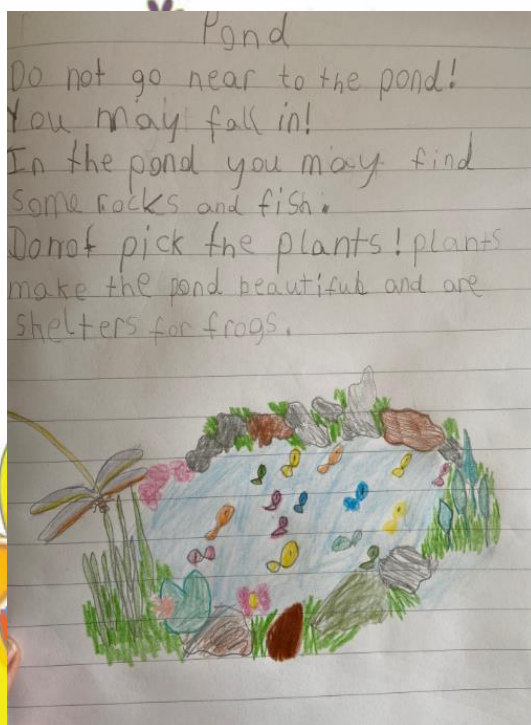 Pond
Do not go near to the pond!
You may fall in!
In the pond you may find
some rocks and fish.
Donot pick the plants! plants
make the pond beautiful and are
shelters for frogs.